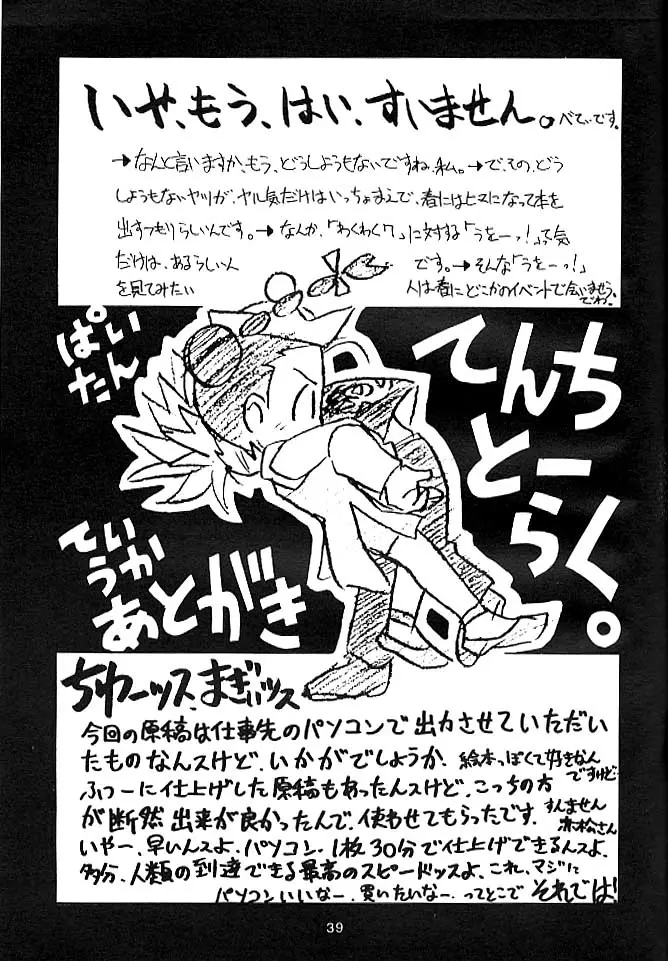 いや、もう、はい、すいません。べてぃです。
→なんと言いますか、もう、どうしようもないですね、私。→で、その、どう
しようもないヤツが、ヤル気だけはいっちょまえで、春にはヒマになって本を
出すつもりらしいんです。→なんか、「わくわく7」に対する「うをーっ!」って気
だけは、あるらしい人です。→そんな「うをーっ!」
を見てみたい人は春にどこかのイベントで会いませう。
でわ。
ぱい
たん
てんち
とーく
らく。
ていうか
あとがき
ちゅーッス、まぎぃッス
今回の原稿は仕事先のパソコンで出力させていただい
たものなんスけど、いかがでしょうか、絵本っぽくて好きなん
ですけど…
ふつーに仕上げした原稿もあったんスけど、こっちの方
が断然出来が良かったんで、使わせてもらったです、すんません
赤松さん
いやー、早いんスよ、パソコン、1枚30分で仕上げできるんスよ、
多分、人類の到達できる最高のスピードッスよ、これ、マジに
パソコンいいなー、買いたいなー、ってとこでそれでは!
39